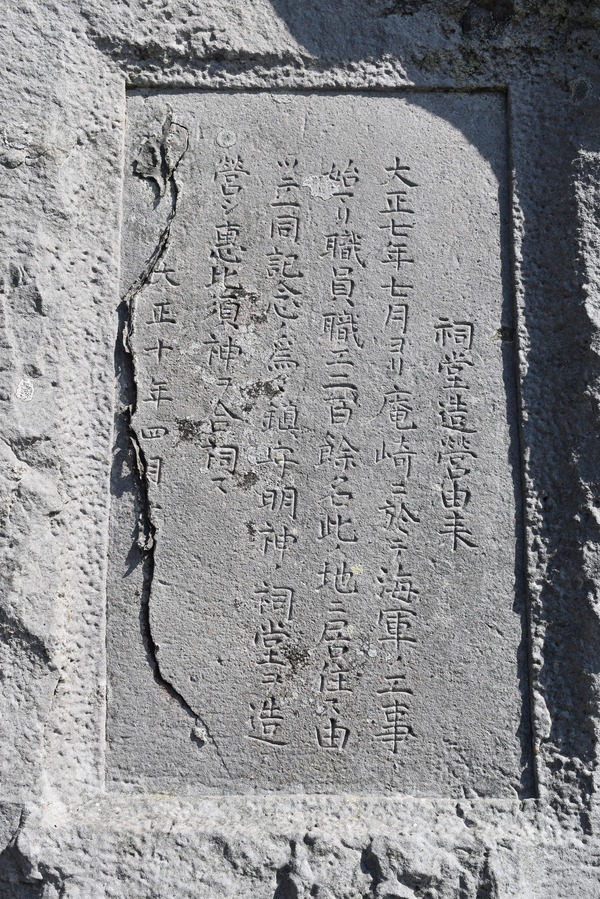 祠堂造営由来
大正七年七月ヨリ庵崎ニ於テ海軍ノ工事
始マリ職員職工二百餘名此ノ地ニ居住ス由
玆ニ一同記念ノ為メ鎮守明神ノ祠堂ヲ造
営シ惠比須神ヲ合祠ス
大正十年四月